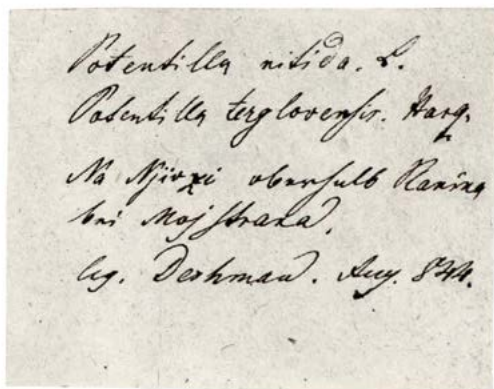 Potentilla nitida. L.
Potentilla terglovensis. Hacq.
Na Njivzi oberhalb Planina
bei Mojstrana.
leg. Deshman. Aug. 844.